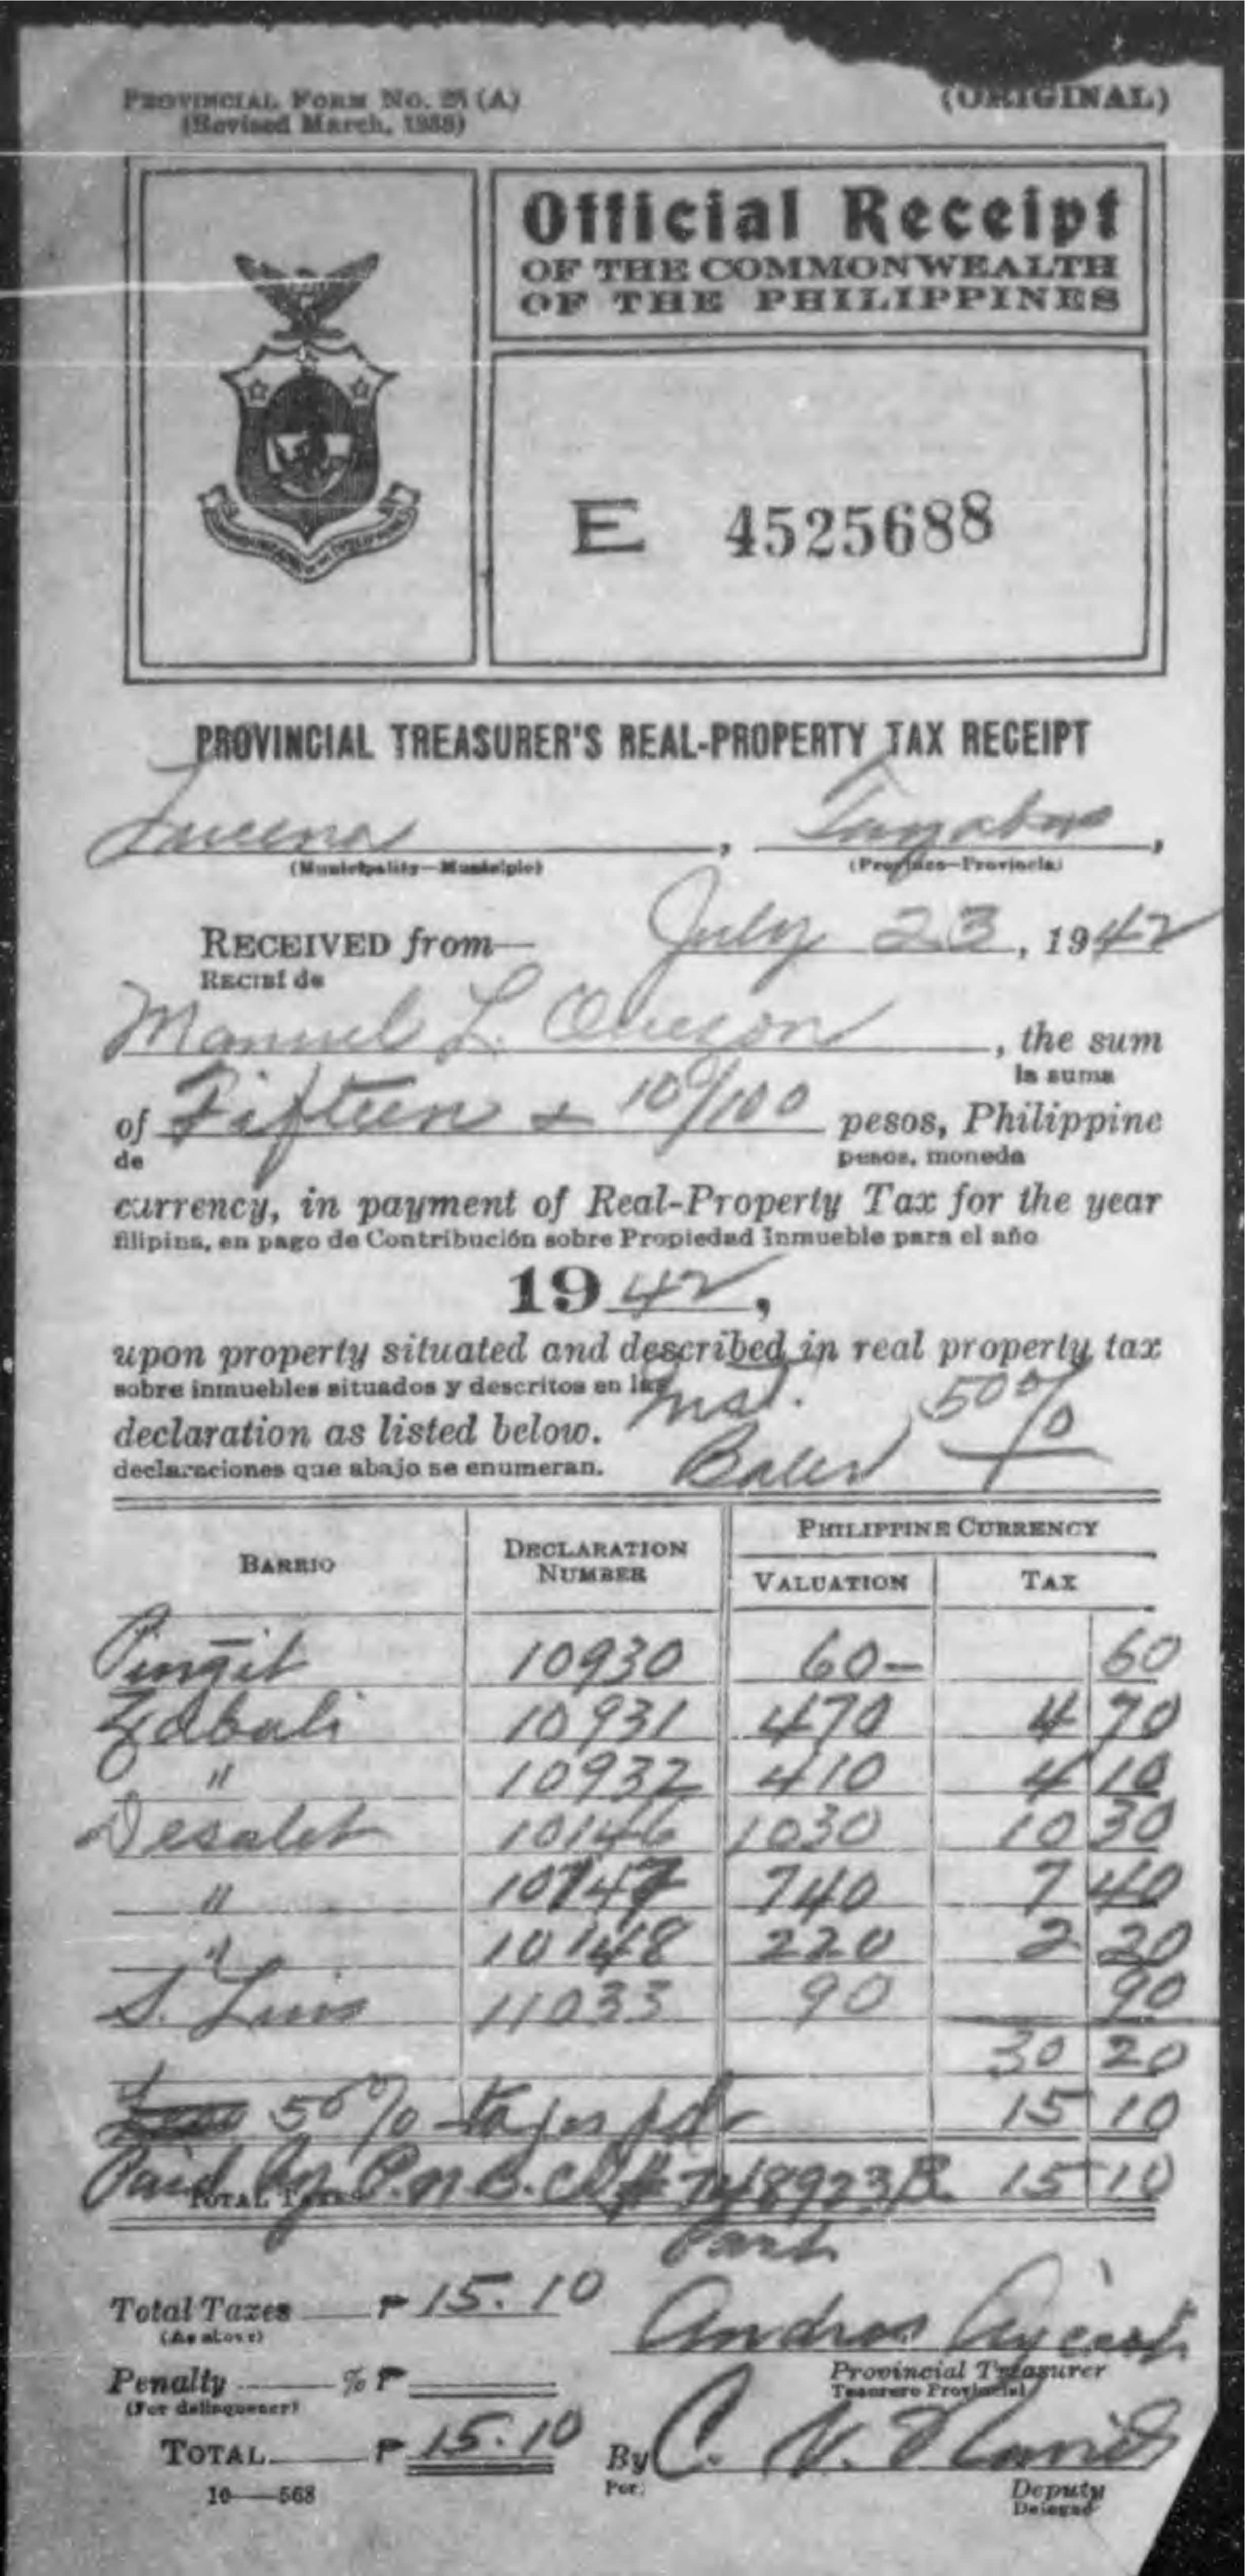 PROVINCIAL FORM No. 25 (A)
(Revised March, 1938)
(ORIGINAL)
Official Receipt
OF THE COMMONWEALTH
OF THE PHILIPPINES
E 4525688
PROVINCIAL TREASURER'S REAL-PROPERTY TAX RECEIPT
Lucena, Tayabas,
(Municipality—Municipio) (Province—Provincia)
July 23, 1942
RECEIVED from—
RECIBÍ de
Manuel L. Quezon, the sum
la suma
of Fifteen & 10/100 pesos, Philippine
de pesos, moneda
currency, in payment of Real-Property Tax for the year
filipina, en pago de Contribución sobre Propiedad Inmueble para el año
1942,
upon property situated and described in real property tax
sobre inmuebles situados y descritos en las
Inst. 50%
declaration as listed below.
declaraciones que abajo se enumeran.
Baler
BARRIO DECLARATION NUMBER PHILIPPINE CURRENCY
VALUATION TAX
Pingit 10930 60— 60
Zabali 10931 470 4 70
" 10932 410 4 10
10146 1030 10 30
" 10147 740 7 40
" 10148 220 2 20
S. Luis 11033 90 90
30 20
50% 15 10
Paid by P.N.B. 15 10
TOTAL TAXES
Total Taxes ₱ 15.10
(As above)
Provincial Treasurer
Tesorero Provincial
Penalty % ₱
(For delinquency)
TOTAL ₱ 15.10
By C. N.
Por:
Deputy
Delegado
10—568